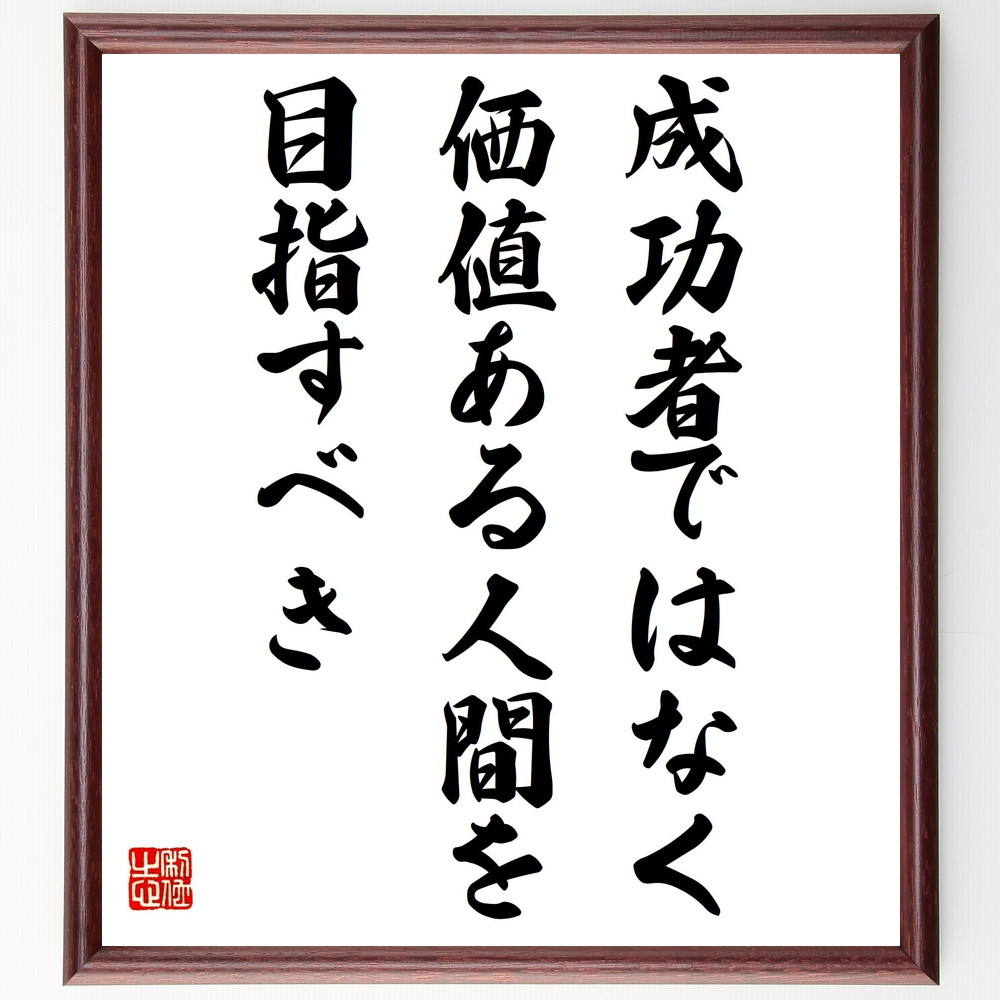 成功者ではなく
価値ある人間を
目指すべき